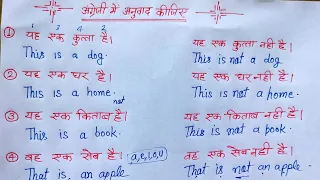 अंग्रेजी में अनुवाद कीजिए
1 3 4 2
① यह एक कुत्ता है। यह एक कुत्ता नहीं है।
This is a dog. This is not a dog.
② यह एक घर है। यह एक घर नहीं है।
This is a home. This is not a home.
not
③ यह एक किताब है। यह एक किताब नहीं है।
This is a book. This is not a book.
④ वह एक सेब है। a,e,i,o,u वह एक सेब नहीं है।
That is an apple That is not an apple